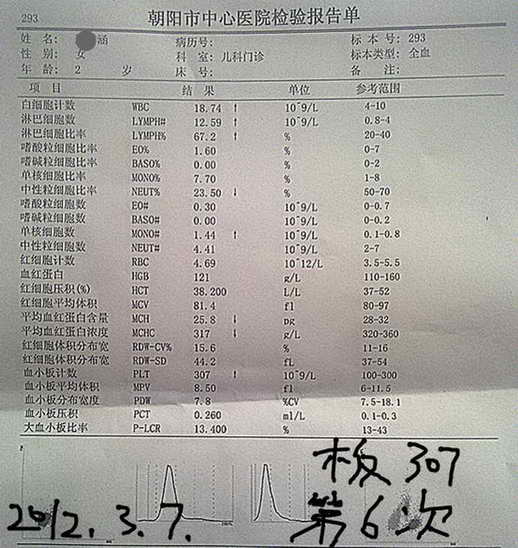 293 朝阳市中心医院检验报告单
姓 名: 涵 病历号: 标 本 号: 293
性 别: 女 科 室: 儿科门诊 标本类型: 全血
年 龄: 2 岁 床 号: 备 注:
项 目 结 果 单位 参考范围
白细胞计数 WBC 18.74 ↑ 10^9/L 4-10
淋巴细胞数 LYMPH# 12.59 ↑ 10^9/L 0.8-4
淋巴细胞比率 LYMPH% 67.2 ↑ % 20-40
嗜酸粒细胞比率 EO% 1.60 % 0-7
嗜碱粒细胞比率 BASO% 0.00 % 0-2
单核细胞比率 MONO% 7.70 % 1-8
中性粒细胞比率 NEUT% 23.50 ↓ % 50-70
嗜酸粒细胞数 EO# 0.30 10^9/L 0-0.7
嗜碱粒细胞数 BASO# 0.00 10^9/L 0-0.2
单核细胞数 MONO# 1.44 ↑ 10^9/L 0.1-0.8
中性粒细胞数 NEUT# 4.41 10^9/L 2-7
红细胞计数 RBC 4.69 10^12/L 3.5-5.5
血红蛋白 HGB 121 g/L 110-160
红细胞压积(%) HCT 38.200 L/L 37-52
红细胞平均体积 MCV 81.4 fl 80-97
平均血红蛋白含量 MCH 25.8 ↓ pg 28-32
平均血红蛋白浓度 MCHC 317 ↓ g/L 320-360
红细胞体积分布宽 RDW-CV% 15.6 % 11-16
红细胞体积分布宽 RDW-SD 44.2 fL 37-54
血小板计数 PLT 307 ↑ 10^9/L 100-300
血小板平均体积 MPV 8.50 fl 6-11.5
血小板分布宽度 PDW 7.8 %CV 7.5-18.1
血小板压积 PCT 0.260 ml/L 0.1-0.3
大血小板比率 P-LCR 13.400 % 13-43
板 307
2012.3.7. 第6次